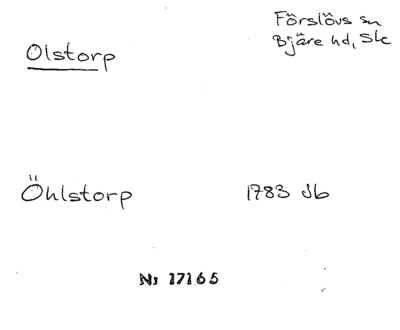 Olstorp
Förslövs sn
Bjäre hd, Sk
Öhlstorp
1783 Jb
Nr 17165